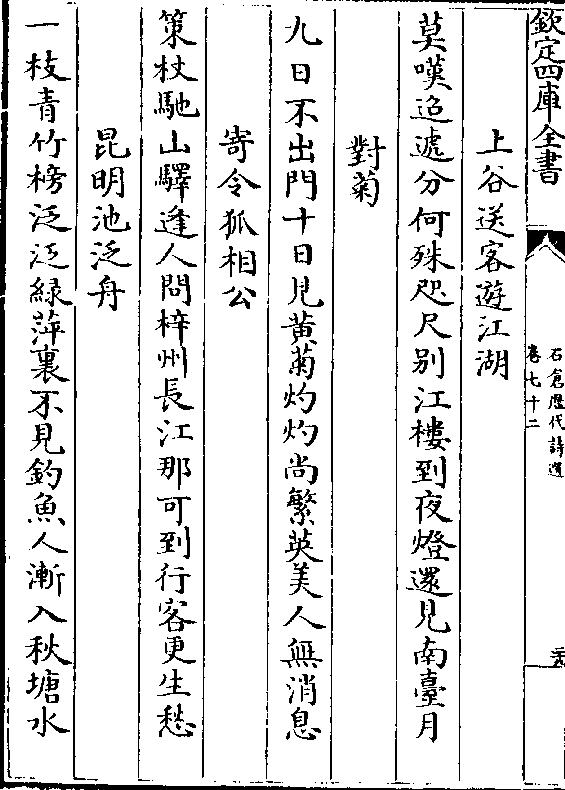 欽定四庫全書
石倉歷代詩選
卷七十二
上谷送客遊江湖
莫嘆迢遞分何殊咫尺别江樓到夜燈還見南臺月
對菊
九日不出門十日見黄菊灼灼尚繁英美人無消息
寄令狐相公
策杖馳山驛逢人問梓州長江那可到行客更生愁
昆明池泛舟
一枝青竹榜泛泛緑萍裏不見釣魚人漸入秋塘水